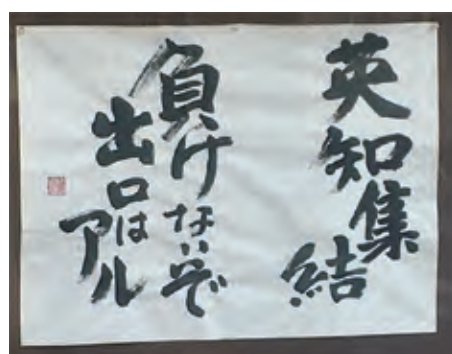 英知集結
負けないで
出口はアル